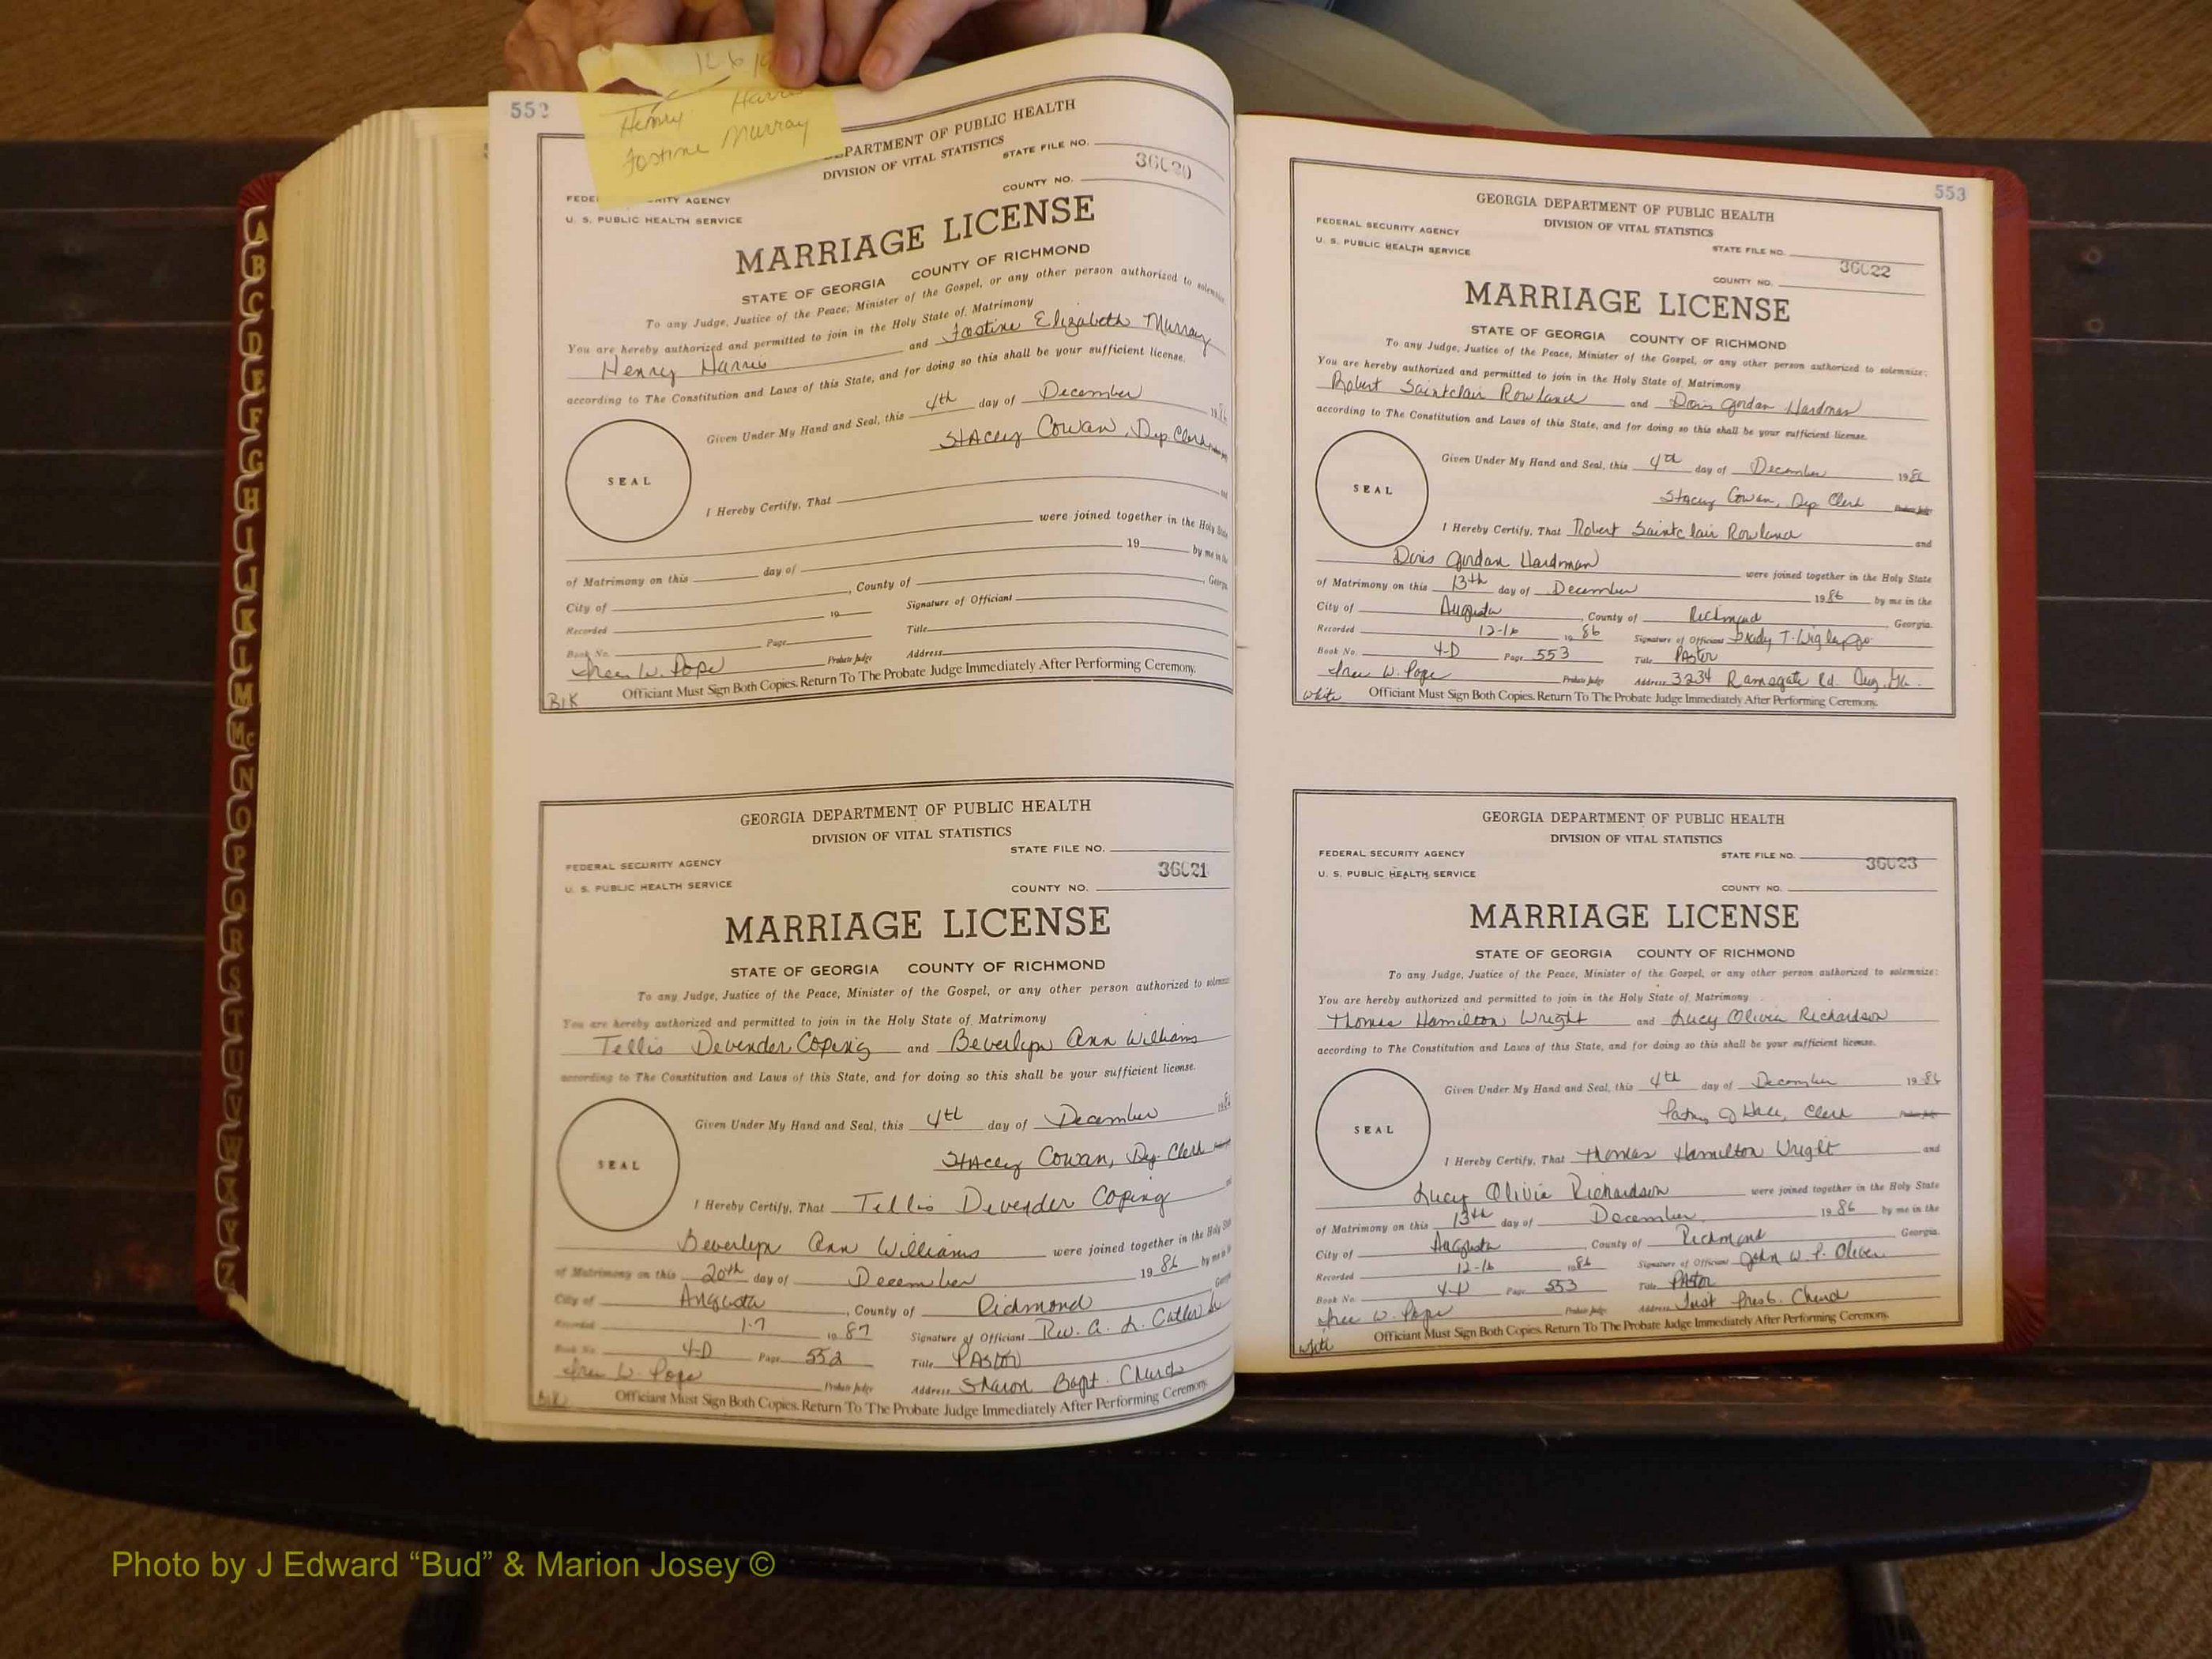 552
12 6
Henry Harris
Fostine Murray
DEPARTMENT OF PUBLIC HEALTH
DIVISION OF VITAL STATISTICS
STATE FILE NO.
36620
COUNTY NO.
AGENCY
U. S. PUBLIC HEALTH SERVICE
MARRIAGE LICENSE
STATE OF GEORGIA COUNTY OF RICHMOND
To any Judge, Justice of the Peace, Minister of the Gospel, or any other person authorized to solemnize
You are hereby authorized and permitted to join in the Holy State of Matrimony
Henry Harris and Fostine Elizabeth Murray
according to The Constitution and Laws of this State, and for doing so this shall be your sufficient license.
Given Under My Hand and Seal, this 4th day of December 1986
Stacey Cowan, Dep Clerk
SEAL
I Hereby Certify, That
were joined together in the Holy State
of Matrimony on this day of 19 by me in the
City of , County of , Georgia
Recorded 19 Signature of Officiant
Book No. Page Title
Probate Judge Address
W. Pope
Officiant Must Sign Both Copies. Return To The Probate Judge Immediately After Performing Ceremony.
Blk
GEORGIA DEPARTMENT OF PUBLIC HEALTH
DIVISION OF VITAL STATISTICS
STATE FILE NO.
FEDERAL SECURITY AGENCY
36621
U. S. PUBLIC HEALTH SERVICE
COUNTY NO.
MARRIAGE LICENSE
STATE OF GEORGIA COUNTY OF RICHMOND
To any Judge, Justice of the Peace, Minister of the Gospel, or any other person authorized to solemnize
You are hereby authorized and permitted to join in the Holy State of Matrimony
Tellis Devender Coping and Beverlyn Ann Williams
according to The Constitution and Laws of this State, and for doing so this shall be your sufficient license.
Given Under My Hand and Seal, this 4th day of December 1986
Stacey Cowan, Dep. Clerk
SEAL
I Hereby Certify, That Tellis Devender Coping
Beverlyn Ann Williams were joined together in the Holy State
of Matrimony on this 20th day of December 1986 by me in
City of Augusta, County of Richmond Georgia
Recorded 1-7 1987 Signature of Officiant Rev. A. L. Cutler Sr
Book No. 4-D Page 552 Title Pastor
W. Pope Probate Judge Address Sharon Bapt. Church
Officiant Must Sign Both Copies. Return To The Probate Judge Immediately After Performing Ceremony.
Blk
553
GEORGIA DEPARTMENT OF PUBLIC HEALTH
DIVISION OF VITAL STATISTICS
FEDERAL SECURITY AGENCY
U. S. PUBLIC HEALTH SERVICE
STATE FILE NO.
36622
COUNTY NO.
MARRIAGE LICENSE
STATE OF GEORGIA COUNTY OF RICHMOND
To any Judge, Justice of the Peace, Minister of the Gospel, or any other person authorized to solemnize:
You are hereby authorized and permitted to join in the Holy State of Matrimony
Robert Saintclair Rowland and Doris Gordan Hardman
according to The Constitution and Laws of this State, and for doing so this shall be your sufficient license.
Given Under My Hand and Seal, this 4th day of December 1986
Stacey Cowan, Dep Clerk Probate Judge
SEAL
I Hereby Certify, That Robert Saintclair Rowland and
Doris Gordan Hardman were joined together in the Holy State
of Matrimony on this 13th day of December 1986 by me in the
City of Augusta, County of Richmond Georgia.
Recorded 12-16 1986 Signature of Officiant
Book No. 4-D Page 553 Title Pastor
W. Pope Probate Judge Address 3234 Ramsgate Rd. Aug. Ga.
White Officiant Must Sign Both Copies. Return To The Probate Judge Immediately After Performing Ceremony.
GEORGIA DEPARTMENT OF PUBLIC HEALTH
DIVISION OF VITAL STATISTICS
FEDERAL SECURITY AGENCY
STATE FILE NO.
36623
U. S. PUBLIC HEALTH SERVICE
COUNTY NO.
MARRIAGE LICENSE
STATE OF GEORGIA COUNTY OF RICHMOND
To any Judge, Justice of the Peace, Minister of the Gospel, or any other person authorized to solemnize:
You are hereby authorized and permitted to join in the Holy State of Matrimony
Thomas Hamilton Wright and Lucy Olivia Richardson
according to The Constitution and Laws of this State, and for doing so this shall be your sufficient license.
Given Under My Hand and Seal, this 4th day of December 1986
Clerk Probate Judge
SEAL
I Hereby Certify, That Thomas Hamilton Wright and
Lucy Olivia Richardson were joined together in the Holy State
of Matrimony on this 13th day of December 1986 by me in the
City of Augusta, County of Richmond Georgia.
Recorded 12-16 1986 Signature of Officiant John W. P. Oliver
Book No. 4-D Page 553 Title Pastor
W. Pope Probate Judge Address Presb. Church
White Officiant Must Sign Both Copies. Return To The Probate Judge Immediately After Performing Ceremony.
A B C D E F G H I J K L M Mc N O P Q R S T U V W X Y Z
Photo by J Edward “Bud” & Marion Josey ©